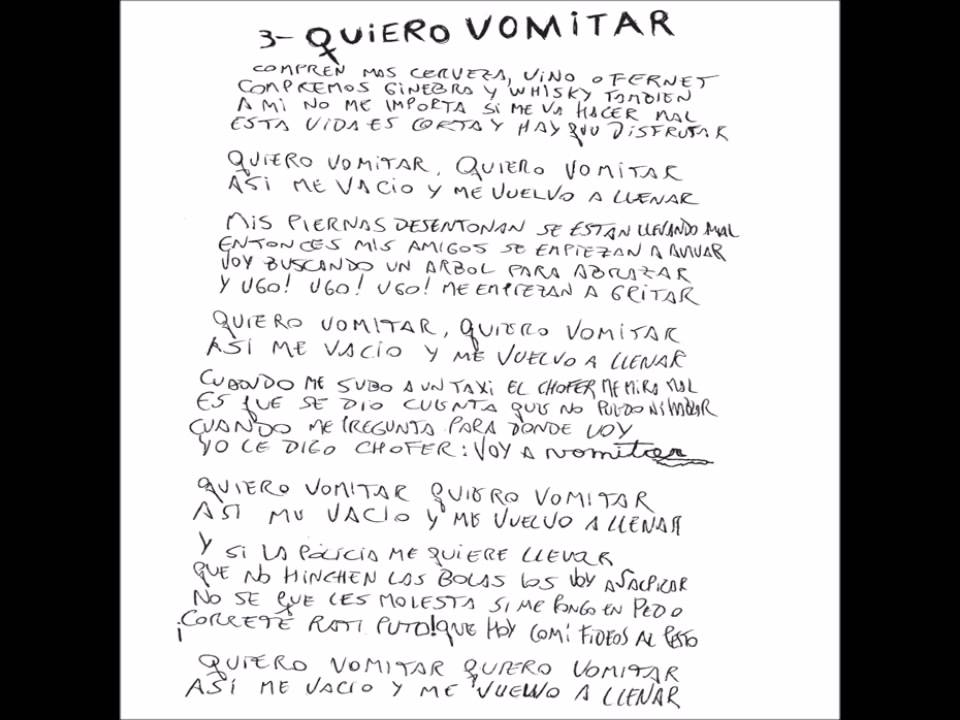 3- QUIERO VOMITAR
COMPREN MAS CERVEZA, VINO O FERNET
COMPREMOS GINEBRA Y WHISKY TAMBIEN
A MI NO ME IMPORTA SI ME VA HACER MAL
ESTA VIDA ES CORTA Y HAY QUU DISFRUTAR
QUIERO VOMITAR, QUIERO VOMITAR
ASI ME VACIO Y ME VUELVO A LLENAR
MIS PIERNAS DESENTONAN SE ESTAN LLEVANDO MAL
ENTONCES MIS AMIGOS SE EMPIEZAN A AVIVAR
VOY BUSCANDO UN ARBOL PARA ABRAZAR
Y UGO! UGO! UGO! ME EMPIEZAN A GRITAR
QUIERO VOMITAR, QUIERO VOMITAR
ASI ME VACIO Y ME VUELVO A LLENAR
CUANDO ME SUBO A UN TAXI EL CHOFER ME MIRA MAL
ES QUE SE DIO CUENTA QUE NO PUEDO NI HABLAR
CUANDO ME PREGUNTA PARA DONDE VOY
YO LE DIGO CHOFER: VOY A vomitar
QUIERO VOMITAR QUIERO VOMITAR
ASI ME VACIO Y ME VUELVO A LLENAR
Y SI LA POLICIA ME QUIERE LLEVAR
QUE NO HINCHEN LAS BOLAS LOS VOY A SALPICAR
NO SE QUE LES MOLESTA SI ME PONGO EN PEDO
¡CORRETE RATI PUTO! QUE HOY COMI FIDEOS AL PESTO
QUIERO VOMITAR QUIERO VOMITAR
ASI ME VACIO Y ME VUELVO A LLENAR